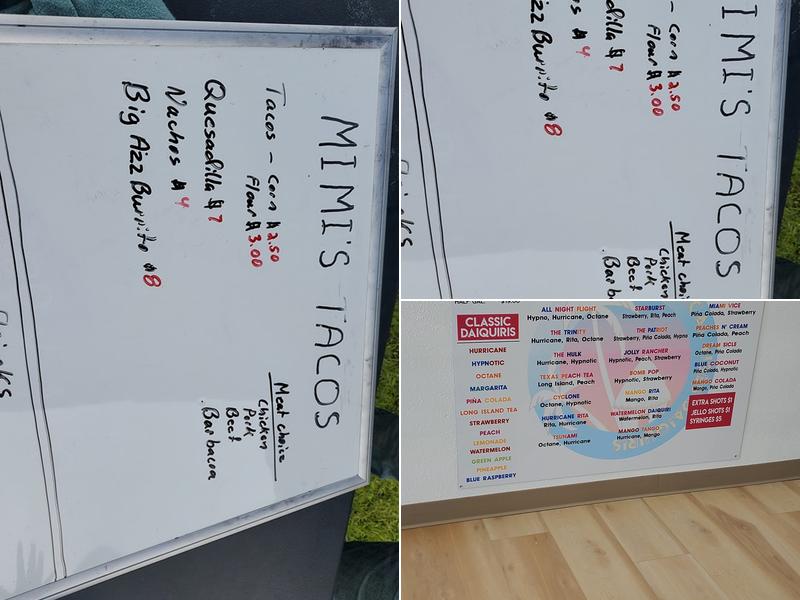 MIMI'S TACOS
Tacos - Corn $2.50
Flour $3.00
Quesadilla $7
Nachos $4
Big Azz Burrito $8
Meat choice
Chicken
Pork
Beef
Barbacoa
IMI'S TACOS
- Corn $2.50
Flour $3.00
dilla $7
s $4
zz Burrito $8
Meat choi
Chicken
Pork
Beef
Barba
CLASSIC
DAIQUIRIS
HURRICANE
HYPNOTIC
OCTANE
MARGARITA
PIÑA COLADA
LONG ISLAND TEA
STRAWBERRY
PEACH
LEMONADE
WATERMELON
GREEN APPLE
PINEAPPLE
BLUE RASPBERRY
ALL NIGHT FLIGHT
Hypno, Hurricane, Octane
THE TRINITY
Hurricane, Rita, Octane
THE HULK
Hurricane, Hypnotic
TEXAS PEACH TEA
Long Island, Peach
CYCLONE
Octane, Hypnotic
HURRICANE RITA
Rita, Hurricane
TSUNAMI
Octane, Hurricane
STARBURST
Strawberry, Rita, Peach
THE PATRIOT
Strawberry, Piña Colada, Hypno
JOLLY RANCHER
Hypnotic, Peach, Strawberry
BOMB POP
Hypnotic, Strawberry
MANGO RITA
Mango, Rita
WATERMELON DAIQUIRI
Watermelon, Rita
MANGO TANGO
Hurricane, Mango
MIAMI VICE
Piña Colada, Strawberry
PEACHES N' CREAM
Piña Colada, Peach
DREAM SICLE
Octane, Piña Colada
BLUE COCONUT
Piña Colada, Hypnotic
MANGO COLADA
Mango, Piña Colada
EXTRA SHOTS $1
JELLO SHOTS $1
SYRINGES $5